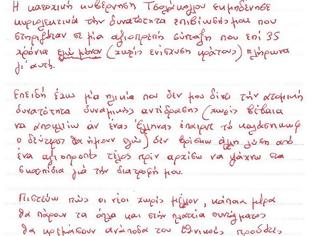 Η κατοχική κυβέρνηση Τσολάκογλου εκμηδένησε
κυριολεκτικά την δυνατότητα επιβίωσής μου που
στηριζόταν σε μια αξιοπρεπή σύνταξη που επί 35
χρόνια εγώ μόνον (χωρίς ενίσχυση κράτους) πλήρωνα
γι' αυτή.
Επειδή έχω μια ηλικία που δεν μου δίνει την ατομική
δυνατότητα δυναμικής αντίδρασης (χωρίς βέβαια
να αποκλείω αν ένας Έλληνας έπαιρνε το καλάσνικωφ
ο δεύτερος θα ήμουν εγώ) δεν βρίσκω άλλη λύση από
ένα αξιοπρεπές τέλος πριν αρχίσω να ψάχνω στα
σκουπίδια για την διατροφή μου.
Πιστεύω πως οι νέοι χωρίς μέλλον, κάποια μέρα
θα πάρουν τα όπλα και στην πλατεία συντάγματος
θα κρεμάσουν ανάποδα τους εθνικούς προδότες